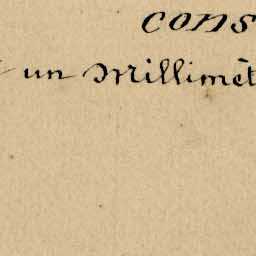 cons
un Millimèt